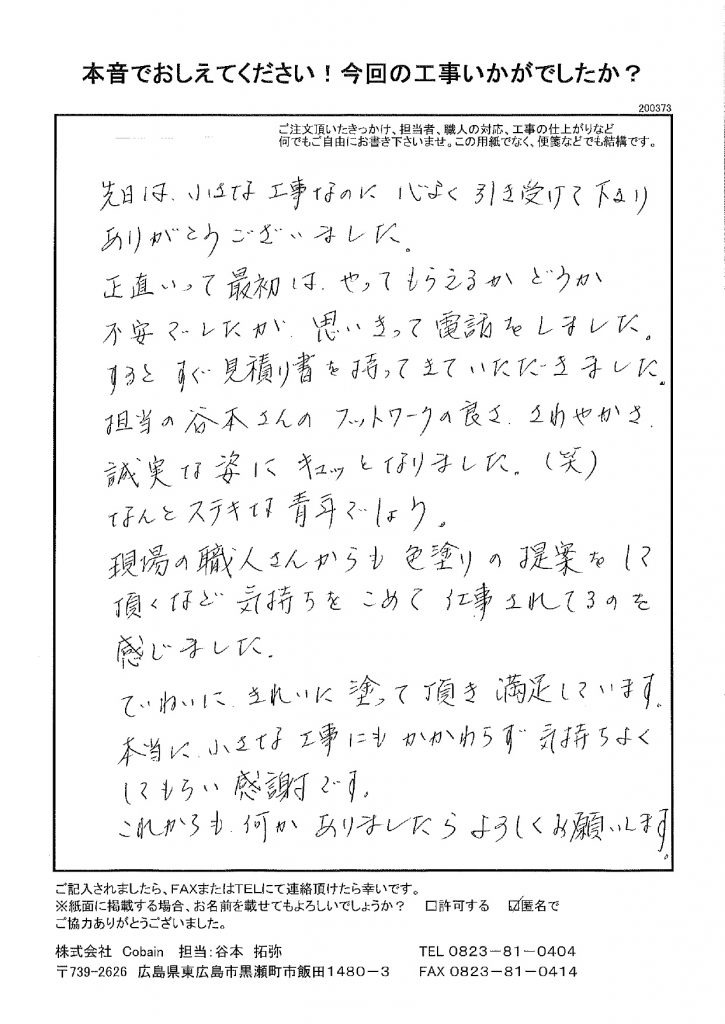 本音でおしえてください！今回の工事いかがでしたか？
200373
ご注文頂いたきっかけ、担当者、職人の対応、工事の仕上がりなど
何でもご自由にお書き下さいませ。この用紙でなく、便箋などでも結構です。
先日は、小さな工事なのに心よく引き受けて下さり
ありがとうございました。
正直いって最初は、やってもらえるかどうか
不安でしたが、思いきって電話をしました。
するとすぐ見積り書を持ってきていただきました。
担当の谷本さんのフットワークの良さ、さわやかさ、
誠実な姿にキュッとなりました。（笑）
なんとステキな青年でしょう。
現場の職人さんからも色塗りの提案をして
頂くなど気持ちをこめて仕事されてるのを
感じました。
ていねいに、きれいに塗って頂き満足しています。
本当に、小さな工事にもかかわらず気持ちよく
してもらい感謝です。
これからも、何かありましたらよろしくお願いします。
ご記入されましたら、FAXまたはTELにて連絡頂けたら幸いです。
※紙面に掲載する場合、お名前を載せてもよろしいでしょうか？　□許可する　☑匿名で
ご協力ありがとうございました。
株式会社　Cobain　担当：谷本　拓弥　TEL 0823－81－0404
〒739-2626　広島県東広島市黒瀬町市飯田1480－3　FAX 0823－81－0414